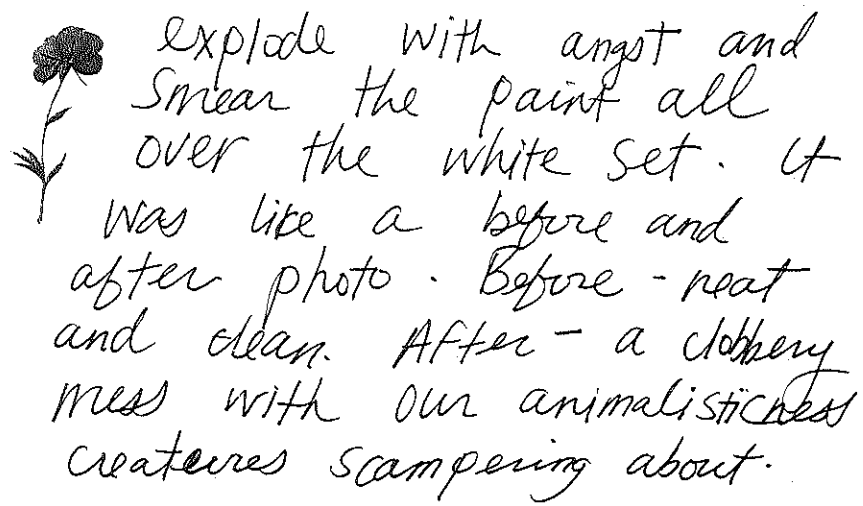 explode with angst and
smear the paint all
over the white set. It
was like a before and
after photo. Before - neat
and clean. After - a clobbery
mess with our animalisticness
creatures scampering about.